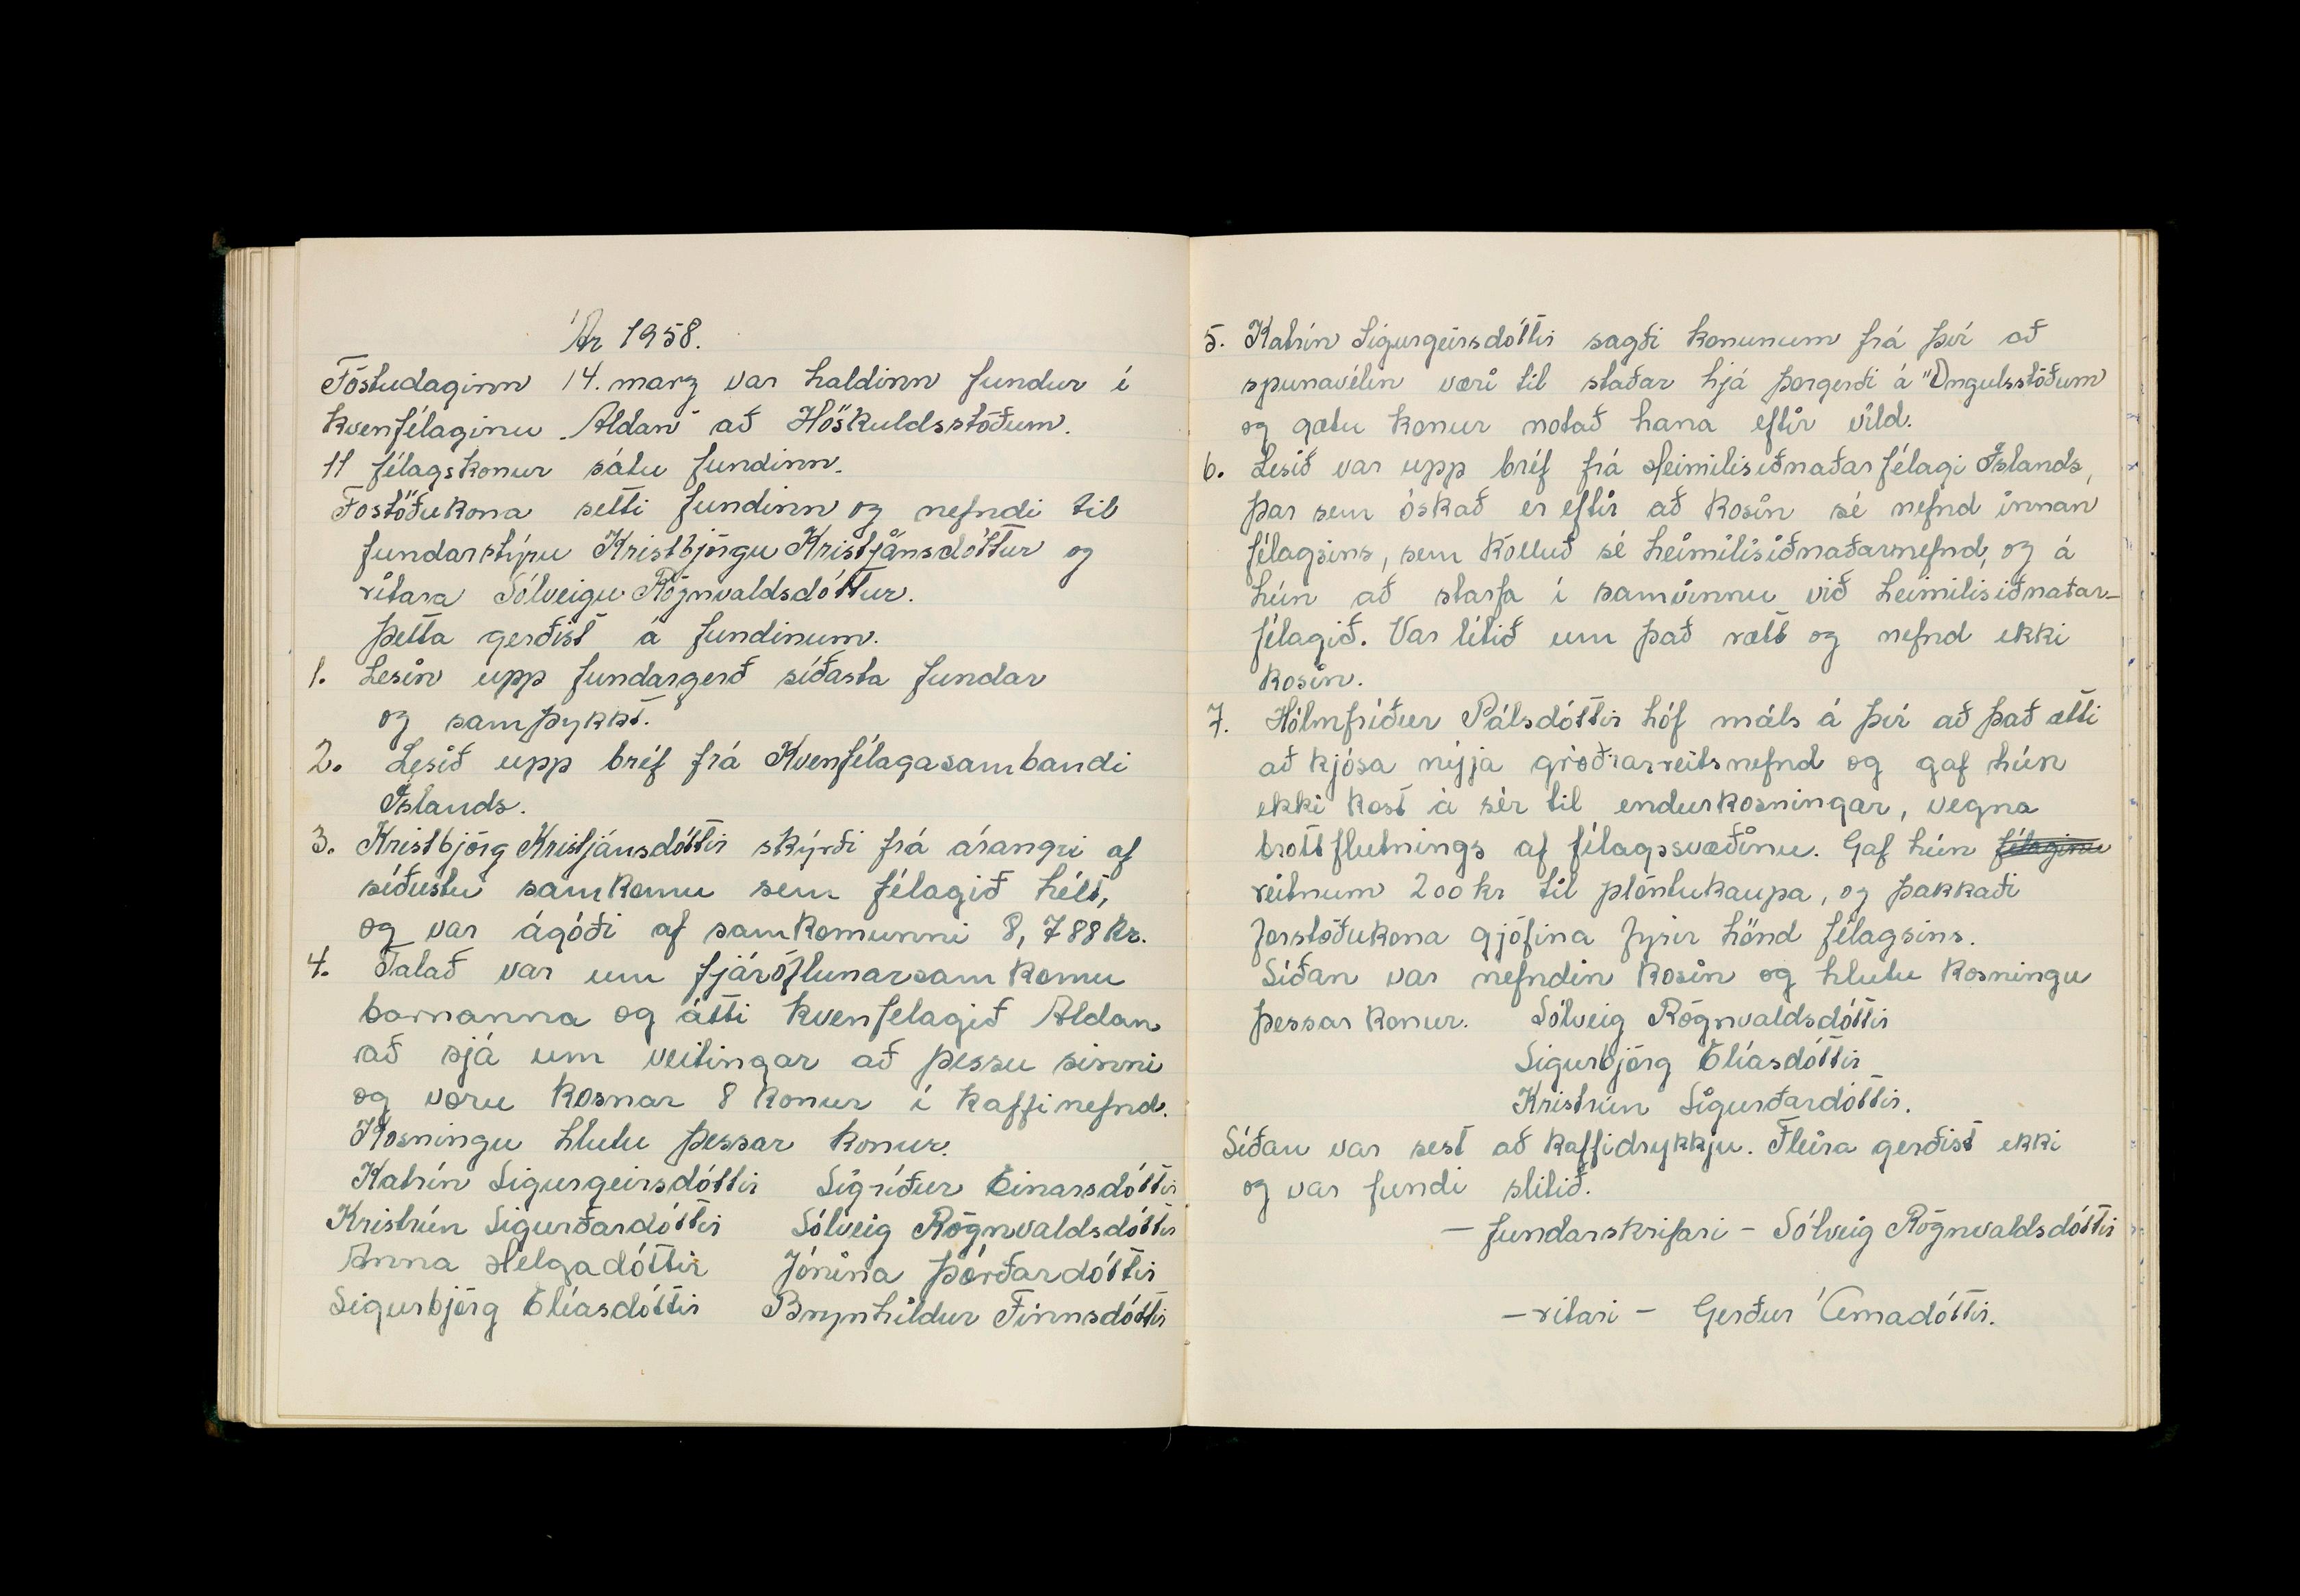 Ár 1958.
Föstudaginn 14. marz var haldinn fundur í
kvenfélaginu „Aldan" að Höskuldsstöðum.
11 félagskonur sátu fundinn.
Fostöðukona setti fundinn og nefndi til
fundarstýru Kristbjörgu Kristjánsdóttur og
ritara Sólveigu Rögnvaldsdóttur.
Þetta gerðist á fundinum.
1. Lesin upp fundargerð síðasta fundar
og samþykkt.
2. Lesið upp bréf frá Kvenfélagasambandi
Íslands.
3. Kristbjörg Kristjánsdóttir skýrði frá árangri af
síðustu samkomu sem félagið hélt,
og var ágóði af samkomunni 8,788 kr.
4. Talað var um fjáröflunarsamkomu
barnanna og átti kvenfelagið Aldan
að sjá um veitingar að þessu sinni
og voru kosnar 8 konur í kaffinefnd.
Kosningu hlutu þessar konur.
Katrín Sigurgeirsdóttir Sigríður Einarsdóttir
Kristrún Sigurðardóttir Sólveig Rögnvaldsdóttir
Anna Helgadóttir Jónína Þórðardóttir
Sigurbjörg Elíasdóttir Brynhildur Finnsdóttir
5. Katrín Sigurgeirsdóttir sagði konunum frá því að
spunavélin væri til staðar hjá Þorgerði á Öngulsstöðum
og gætu konur notað hana eftir vild.
6. Lesið var upp bréf frá Heimilisiðnaðarfélagi Íslands,
þar sem óskað er eftir að kosin sé nefnd innan
félagsins, sem kölluð sé heimilisiðnaðarnefnd, og á
hún að starfa í samvinnu við heimilisiðnaðar-
félagið. Var lítið um það rætt og nefnd ekki
kosin.
7. Hólmfríður Pálsdóttir hóf máls á því að það ætti
að kjósa nýja gróðrarreitsnefnd og gaf hún
ekki kost á sér til endurkosningar, vegna
brottflutnings af félagssvæðinu. Gaf hún félaginu
reitnum 200 kr til plöntukaupa, og þakkaði
forstöðukona gjöfina fyrir hönd félagsins.
Síðan var nefndin kosin og hlutu kosningu
þessar konur. Sólveig Rögnvaldsdóttir
Sigurbjörg Elíasdóttir
Kristrún Sigurðardóttir.
Síðan var sest að kaffidrykkju. Fleira gerðist ekki
og var fundi slitið.
– fundarskrifari – Sólveig Rögnvaldsdóttir
– ritari – Gerður Árnadóttir.